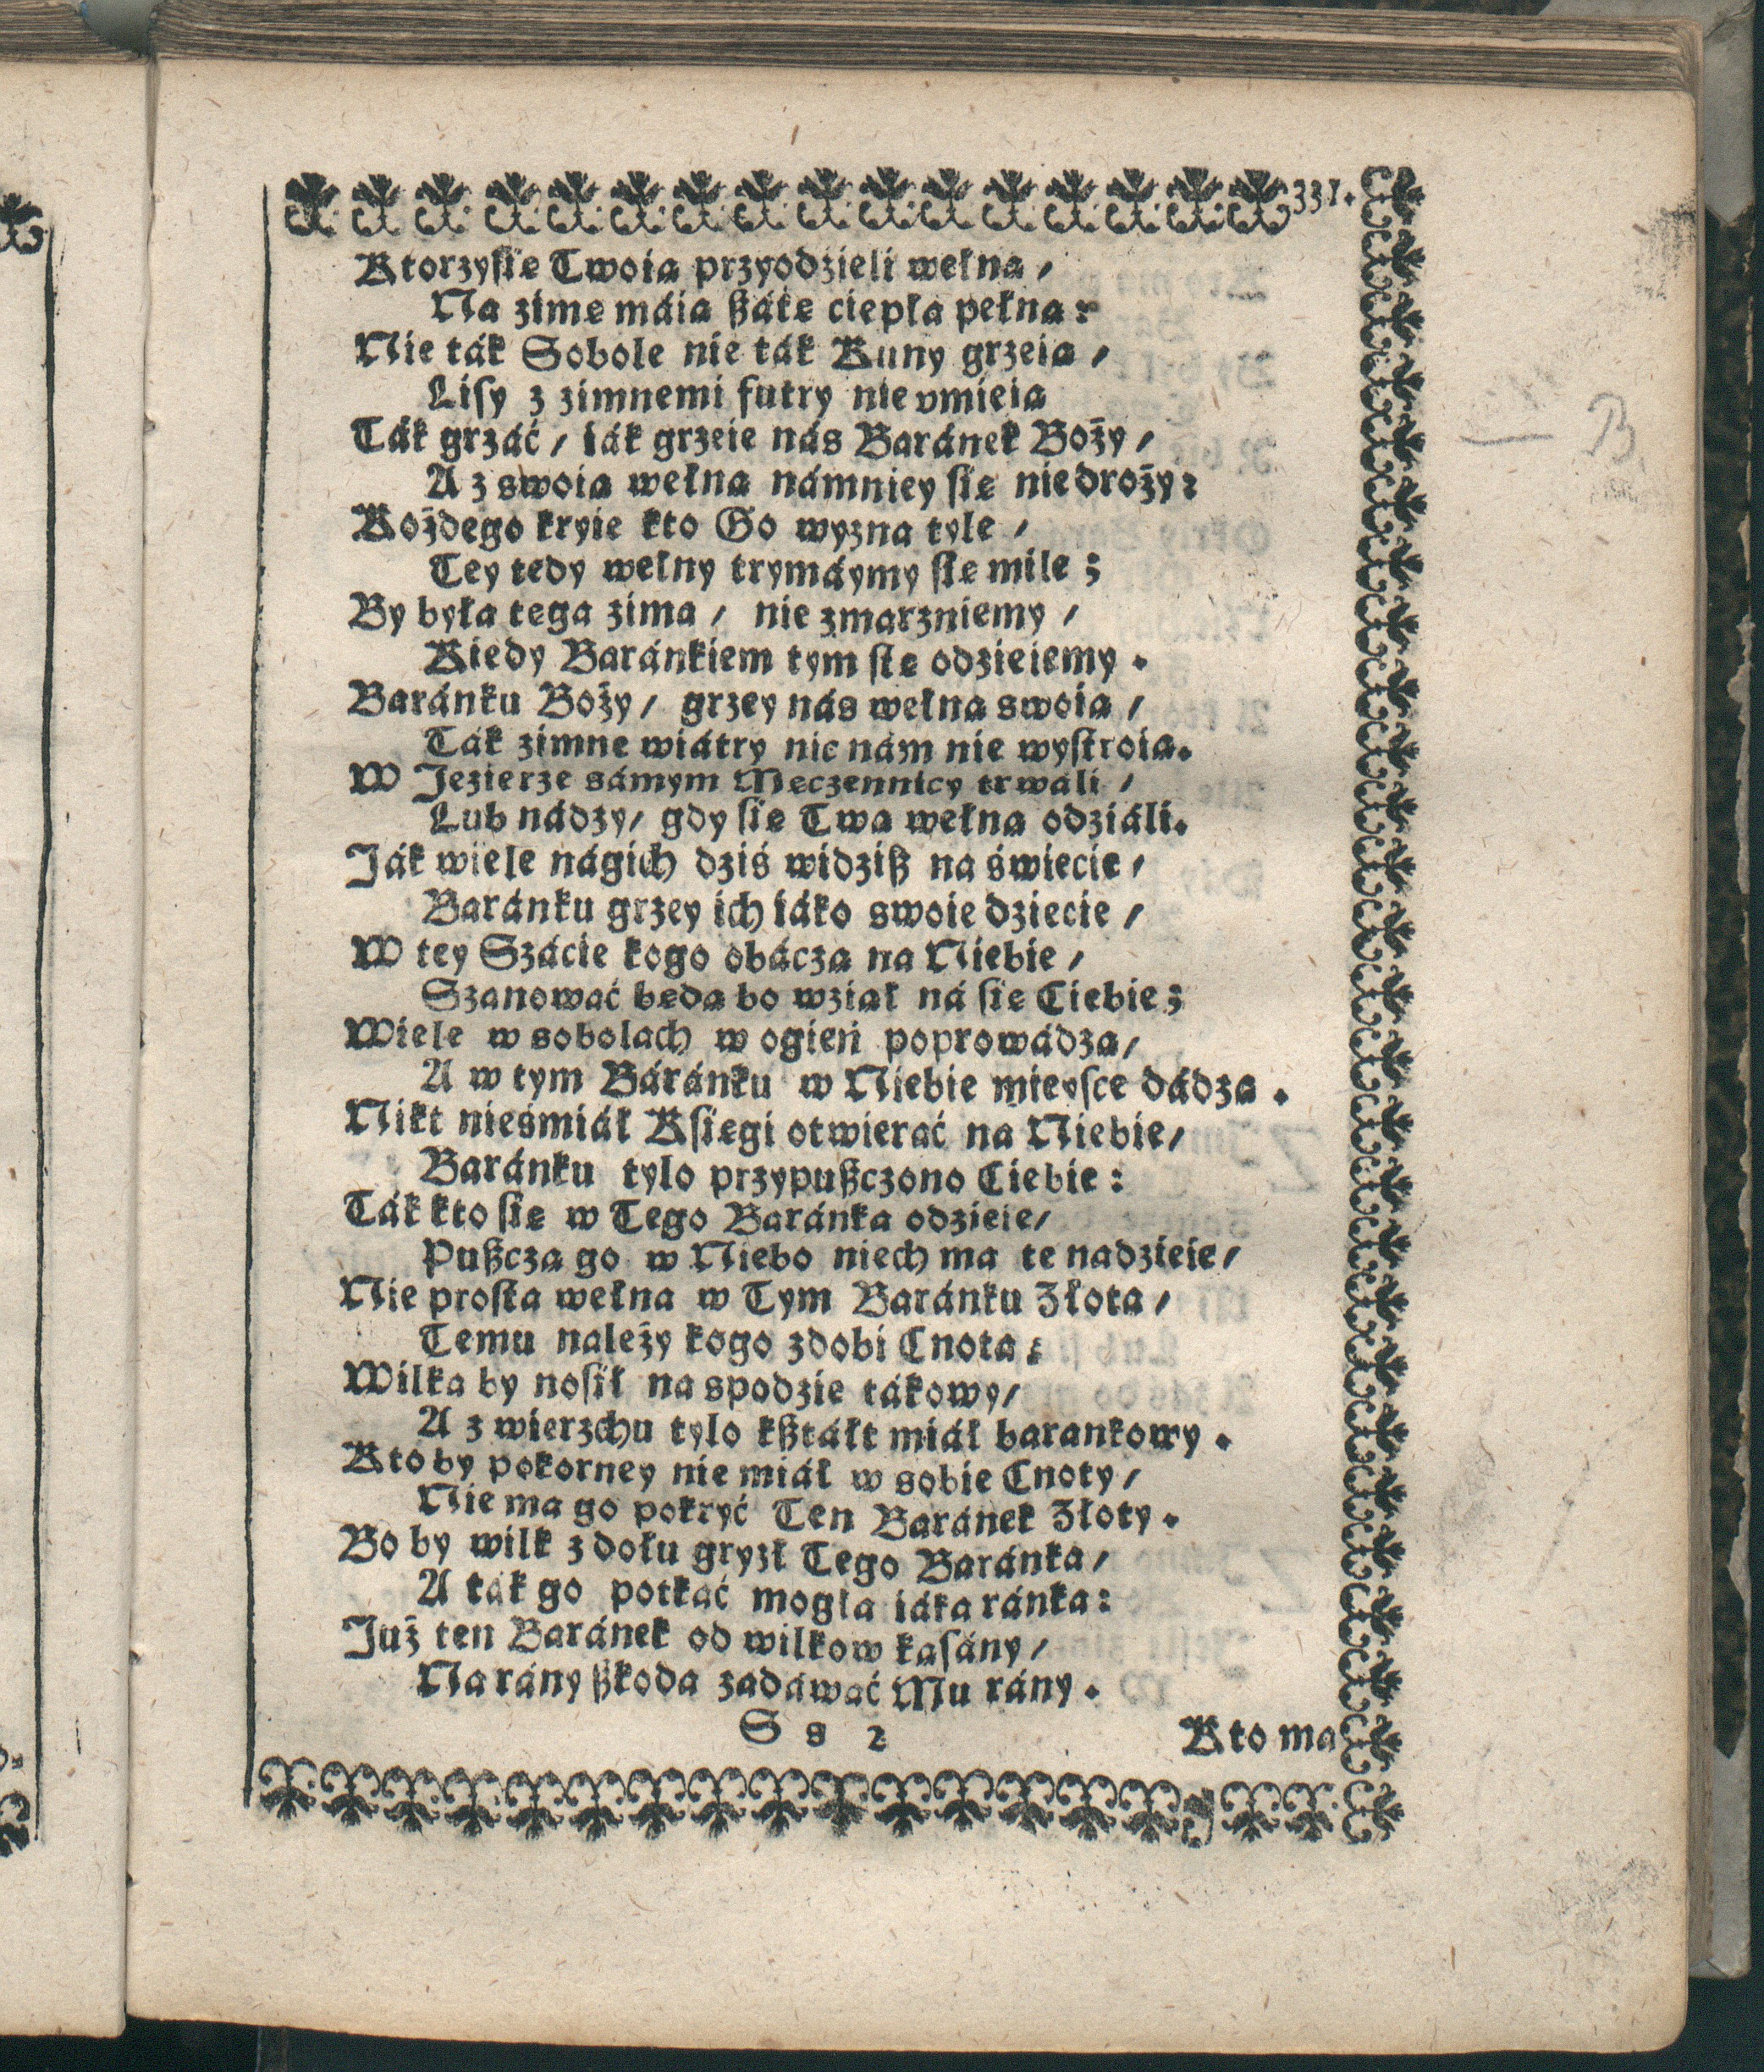 331.
Ktorzyſie Twoia przyodzieli wełna /
Na zime máia ßáte ciepła pełna:
Nie ták Sobole nie ták Kuny grzeia /
Liſy z zimnemi futry nie vmieia
Ták grzáć / iák grzeie nás Baránek Boży /
A z swoia wełna námniey ſie nie droży:
Kożdego kryie kto Go wyzna tyle /
Tey tedy wełny trymáymy ſie mile ;
By była tega zima / nie zmarzniemy /
Kiedy Baránkiem tym ſie odzieiemy .
Baránku Boży / grzey nás wełna swoia /
Ták zimne wiátry nic nám nie wyſtroia.
W Jezierze sámym Meczennicy trwáli /
Lub nádzy / gdy ſie Twa wełna odziáli.
Ják wiele nágich dziś widziß na świecie /
Baránku grzey ich iáko swoie dziecie /
W tey Szácie kogo obácza na Niebie /
Szanować beda bo wziął ná ſie Ciebie ;
Wiele w sobolach w ogień poprowádza /
A w tym Báránku w Niebie mieyſce dádza .
Nikt nieśmiáł Kſiegi otwierać na Niebie /
Baránku tylo przypußczono Ciebie :
Ták kto ſie w Tego Baránka odzieie /
Pußcza go w Niebo niech ma te nadzieie /
Nie proſta wełna w Tym Baránku Złota /
Temu należy kogo zdobi Cnota :
Wilka by noſił na spodzie tákowy /
A z wierzchu tylo kßtáłt miáł barankowy .
Kto by pokorney nie miáł w sobie Cnoty /
Nie ma go pokryć Ten Baránek Złoty .
Bo by wilk z dołu gryzł Tego Baránka /
A ták go potkáć mogła iáka ránka :
Już ten Baránek od wilkow kaſány /
Na rány ßkoda zadáwać Mu rány .
S s 2
Kto ma
B